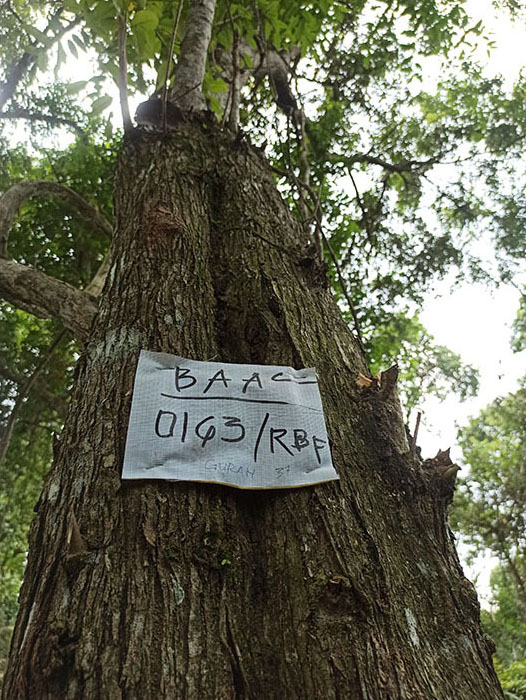 BAAC
0143/RBF
GURAH 37